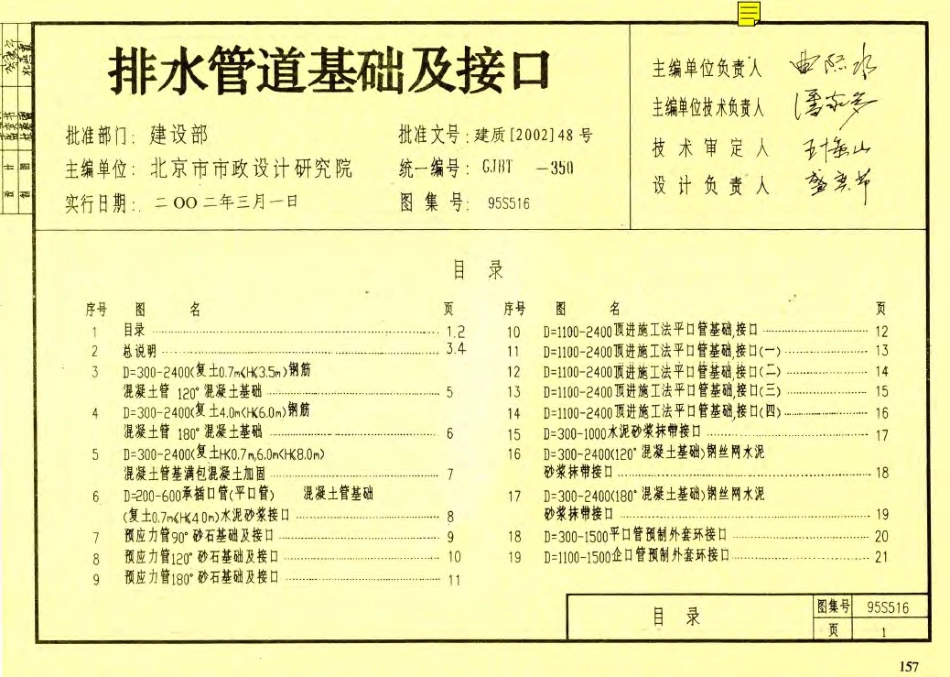 排水管道基础及接口
批准部门: 建设部
批准文号: 建质[2002]48号
主编单位: 北京市市政设计研究院
统一编号: GJBT —350
实行日期: 二OO二年三月一日
图集号: 95S516
主编单位负责人
主编单位技术负责人
技术审定人
设计负责人
目 录
序号 图 名 页
1 目录 1.2
2 总说明 3.4
3 D=300-2400(复土0.7m<H<3.5m)钢筋
混凝土管 120° 混凝土基础 5
4 D=300-2400(复土4.0m<H<6.0m)钢筋
混凝土管 180° 混凝土基础 6
5 D=300-2400(复土H<0.7m,6.0m<H<8.0m)
混凝土管基满包混凝土加固 7
6 D=200-600承插口管(平口管) 混凝土管基础
(复土0.7m<H<4.0m)水泥砂浆接口 8
7 预应力管90° 砂石基础及接口 9
8 预应力管120° 砂石基础及接口 10
9 预应力管180° 砂石基础及接口 11
序号 图 名 页
10 D=1100-2400顶进施工法平口管基础,接口 12
11 D=1100-2400顶进施工法平口管基础,接口(一) 13
12 D=1100-2400顶进施工法平口管基础,接口(二) 14
13 D=1100-2400顶进施工法平口管基础,接口(三) 15
14 D=1100-2400顶进施工法平口管基础,接口(四) 16
15 D=300-1000水泥砂浆抹带接口 17
16 D=300-2400(120° 混凝土基础)钢丝网水泥
砂浆抹带接口 18
17 D=300-2400(180° 混凝土基础)钢丝网水泥
砂浆抹带接口 19
18 D=300-1500平口管预制外套环接口 20
19 D=1100-1500企口管预制外套环接口 21
目 录
图集号 95S516
页 1
157